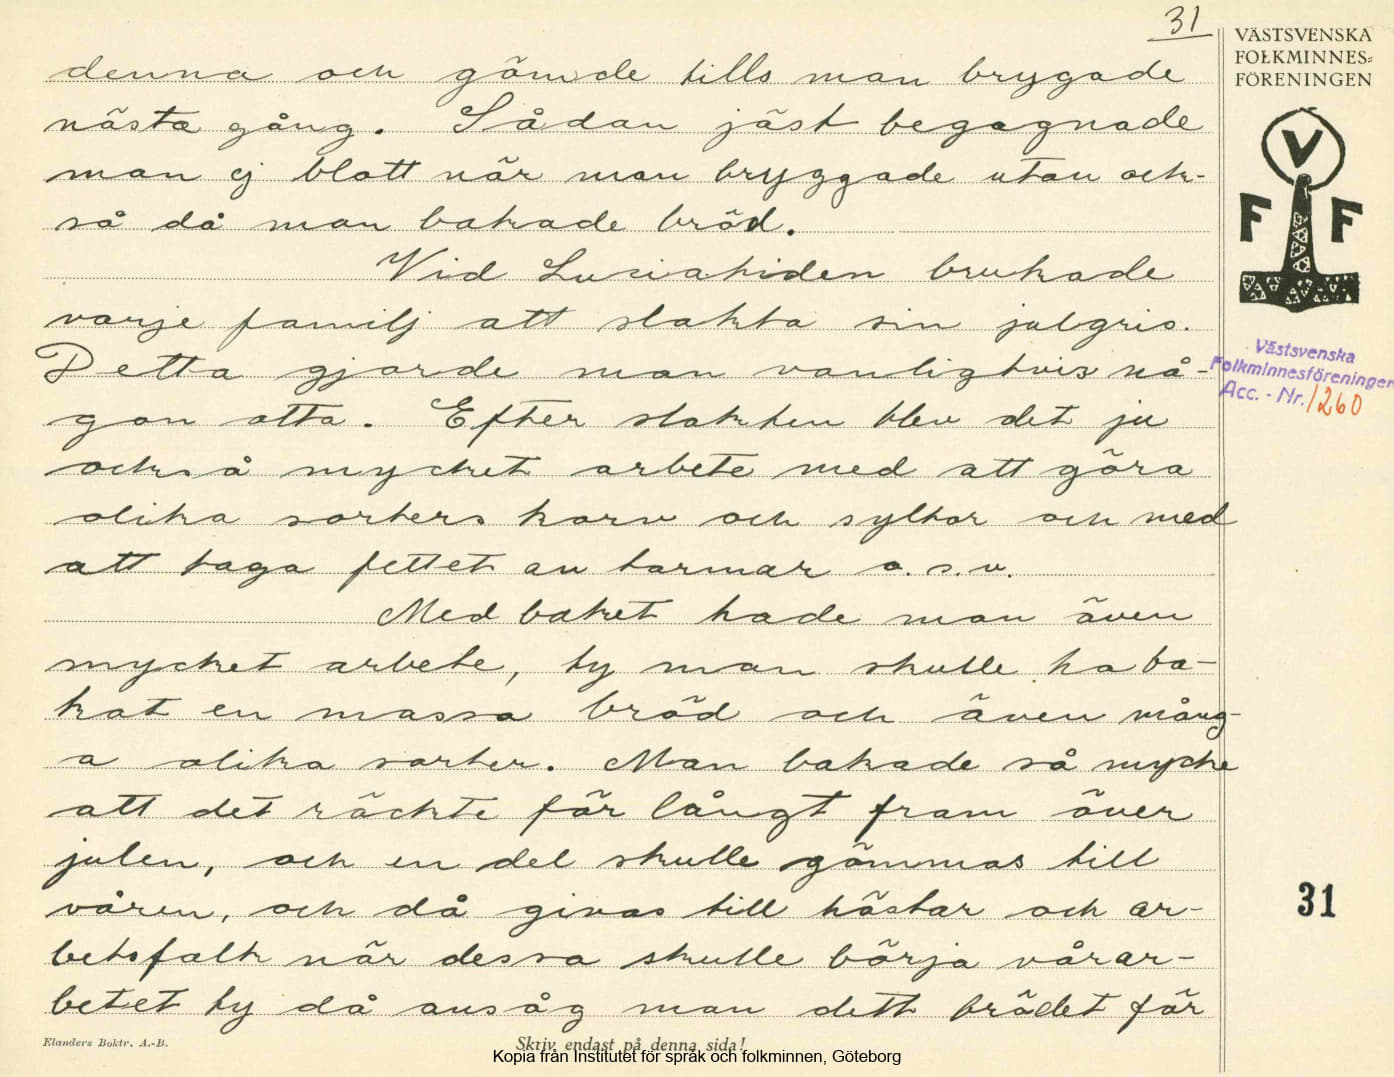 31
denna och gömde tills man brygade
nästa gång. Sådan jäst begagnade
man ej blott när man bryggade utan ock-
så då man bakade bröd.
Vid Luciatiden brukade
varje familj att slakta sin julgris.
Detta gjorde man vanligtvis nå-
gon otta. Efter slakten blev det ju
också mycket arbete med att göra
olika sorters korv och syltor och med
att taga fettet av tarmar o.s.v.
Med baket hade man även
mycket arbete, ty man skulle ha ba-
kat en massa bröd och även mång-
a olika sorter. Man bakade så mycke
att det räckte för långt fram över
julen, och en del skulle gömmas till
våren, och då givas till hästar och ar-
betsfolk när dessa skulle börja vårar-
betet ty då ansåg man dett brödet för
VÄSTSVENSKA
FOLKMINNES=
FÖRENINGEN
V
F F
Västsvenska
Folkminnesföreningen
Acc. - Nr. 1260
31
Elanders Boktr. A.-B.
Skriv endast på denna sida!
Kopia från Institutet för språk och folkminnen, Göteborg